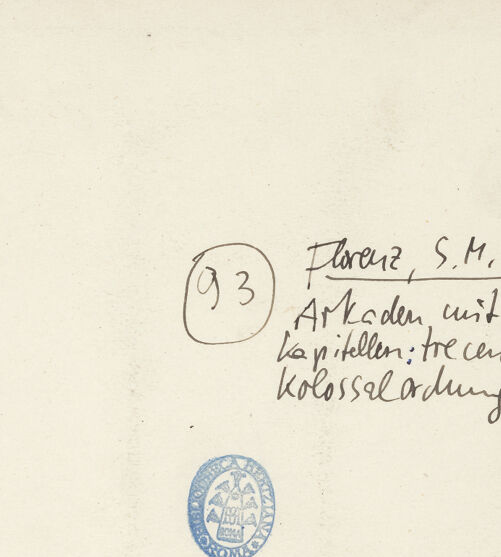 93
Florenz, S.M.
Arkaden mit
Kapitellen; trecen
Kolossalordnung
BIBLIOTHECA HERTZIANA
ROMA